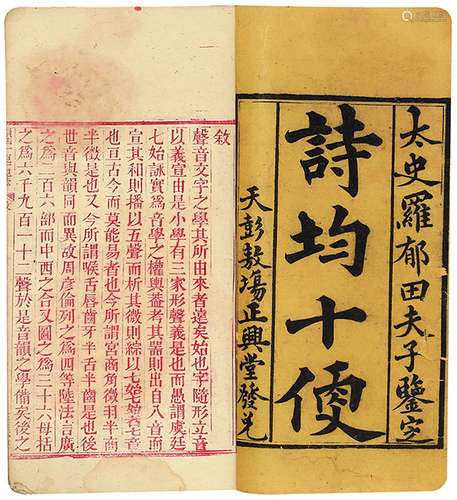 太史羅郁田夫子鑒定
詩均十便
天彭敖塲正興堂發兌
敘
聲音文字之學其所由來者遠矣始也字隨形立音
以義宣由是小學有三家形聲義是也而愚謂虞廷
七始詠實爲音學之權輿蓋考其器則出自八音而
宣其和則播以五聲而析其微則綜以七
也亘古今而莫能易者也今所謂宮商角徵羽半商
半徵是也又今所謂喉舌唇齒牙半舌半齒是也後
世音與韻同而異故周彥倫列之爲四等陸法言廣
之爲二百六部而中西之合又圖之爲三十六母括
之爲六千九百一十二聲於是音韻之學備矣後之